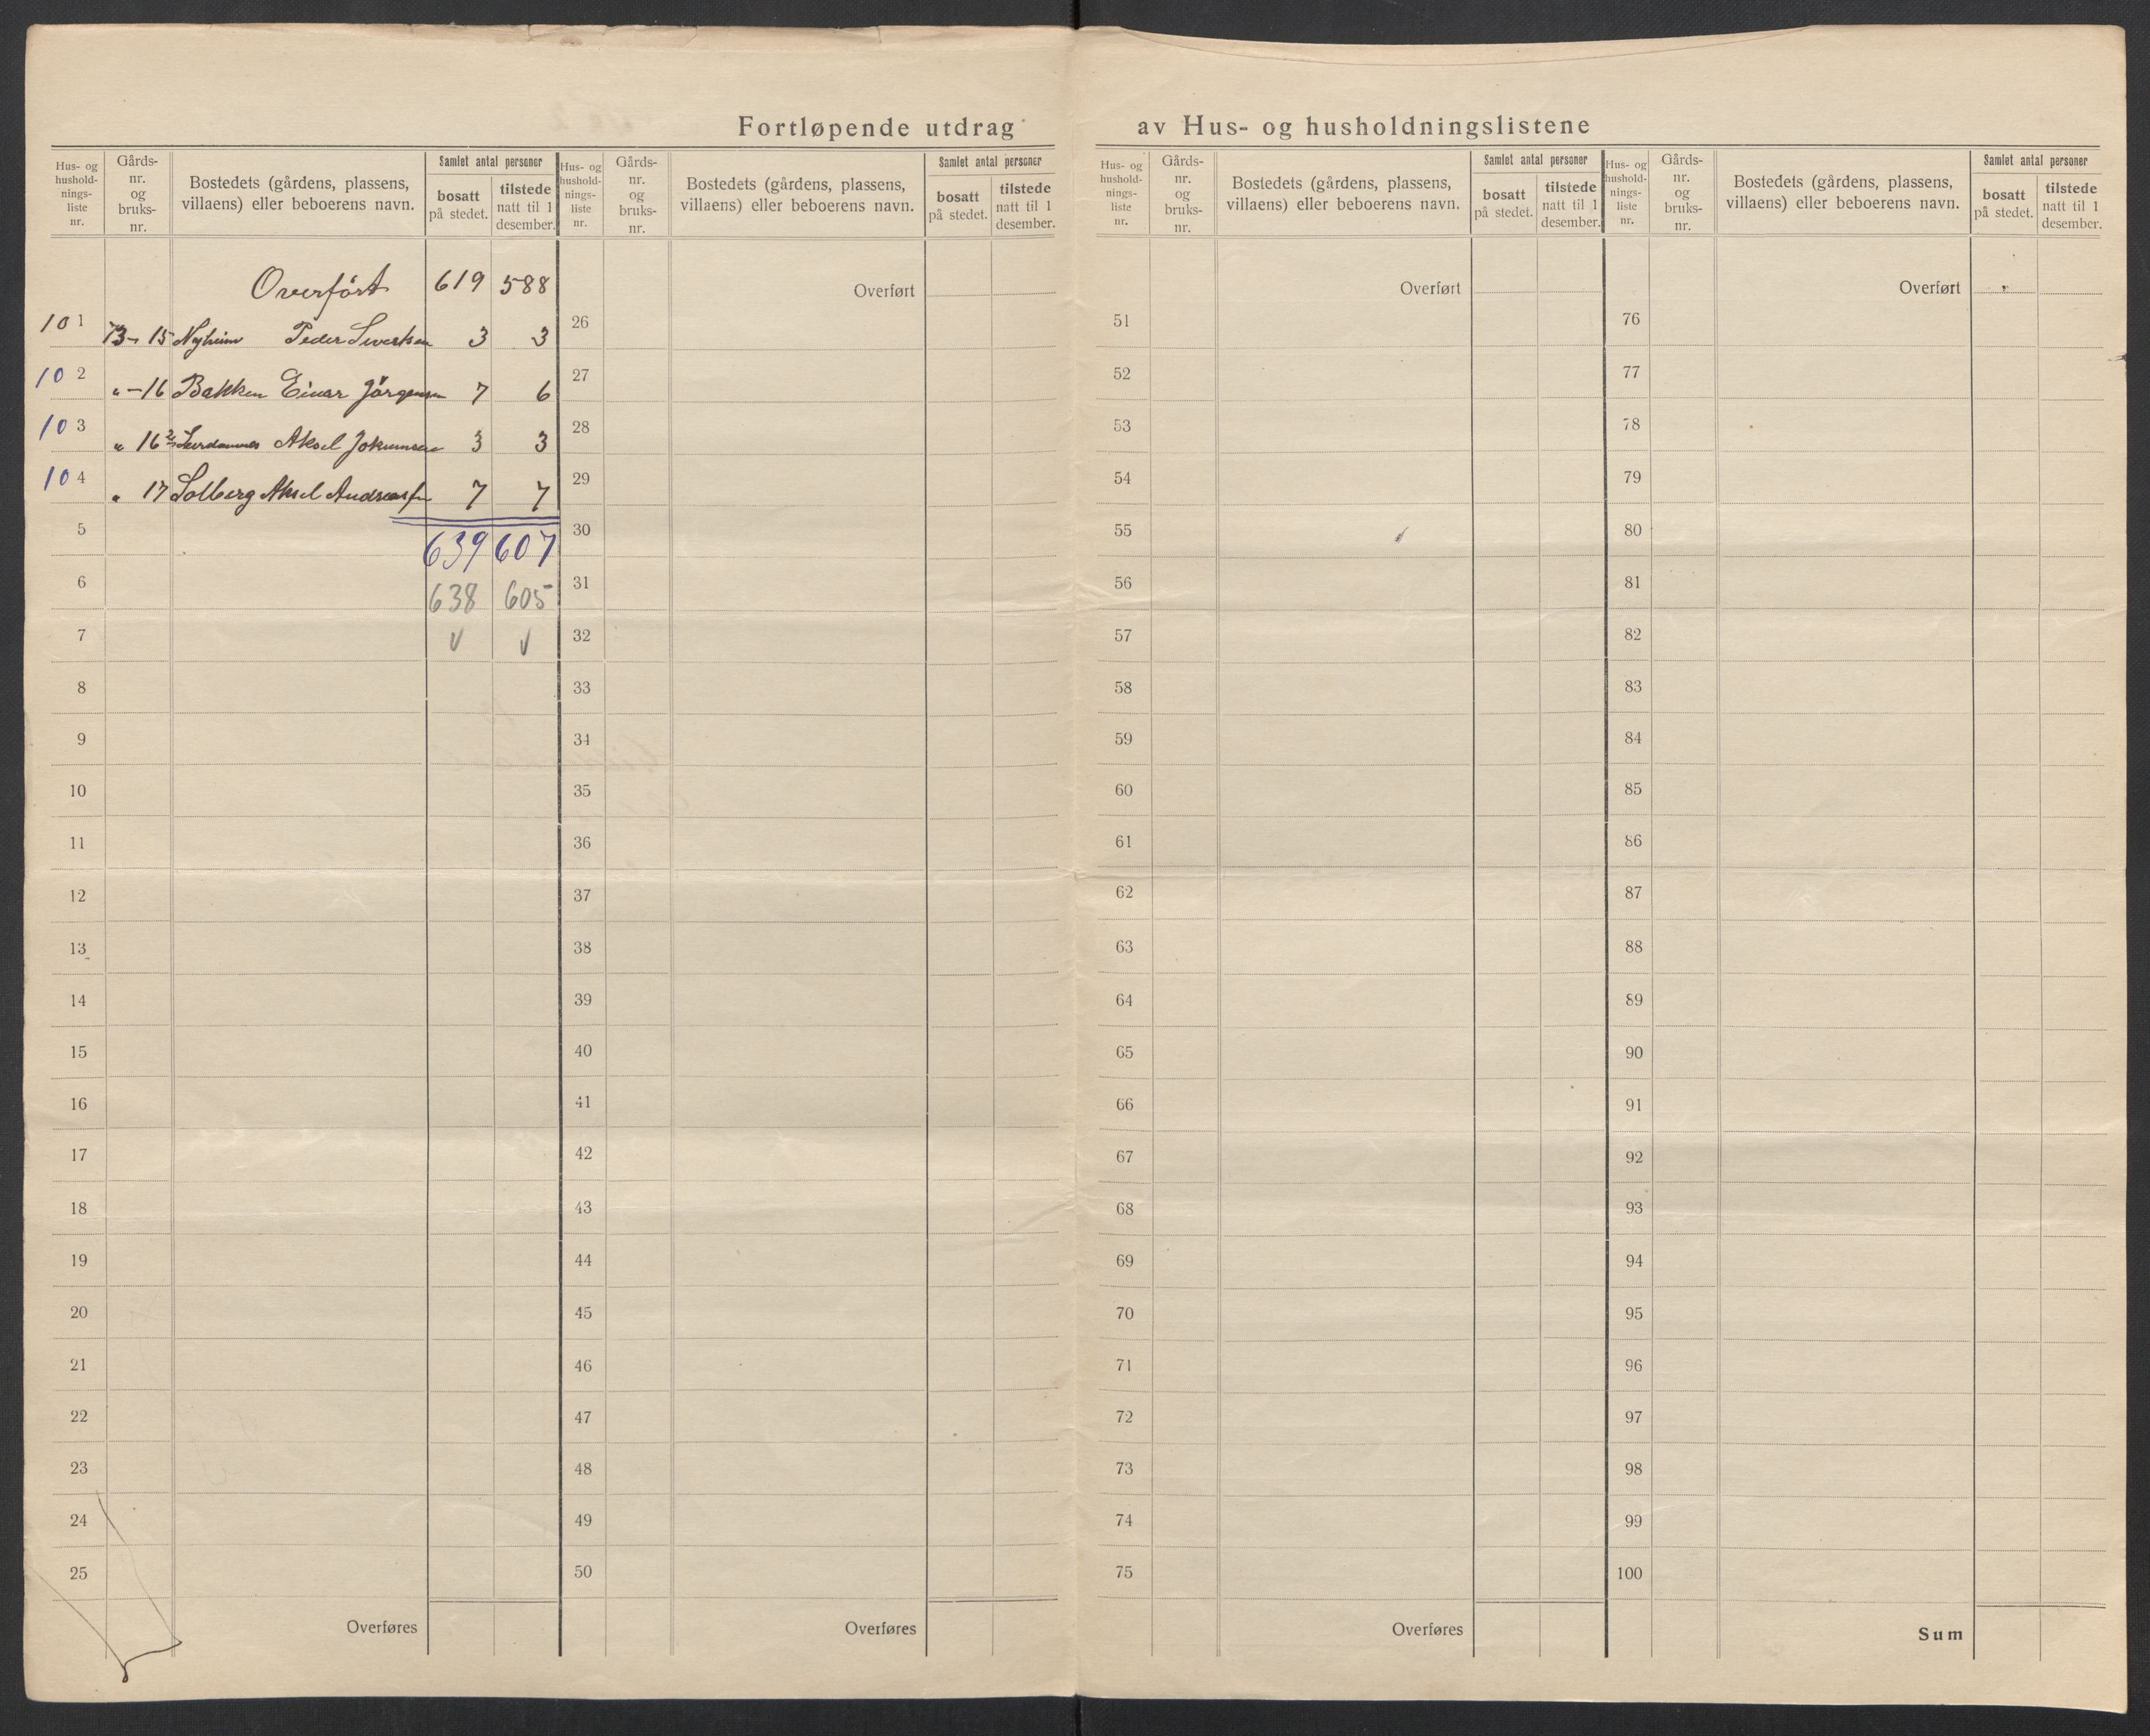 Fortløpende utdrag av Hus- og husholdningslistene
Hus- og husholdningsliste nr. Gårdsnr. og bruksnr. Bostedets (gårdens, plassens, villaens) eller beboerens navn. Samlet antal personer bosatt på stedet. tilstede natt til 1 desember.
Hus- og husholdningsliste nr. Gårdsnr. og bruksnr. Bostedets (gårdens, plassens, villaens) eller beboerens navn. Samlet antal personer bosatt på stedet. tilstede natt til 1 desember.
Hus- og husholdningsliste nr. Gårdsnr. og bruksnr. Bostedets (gårdens, plassens, villaens) eller beboerens navn. Samlet antal personer bosatt på stedet. tilstede natt til 1 desember.
Hus- og husholdningsliste nr. Gårdsnr. og bruksnr. Bostedets (gårdens, plassens, villaens) eller beboerens navn. Samlet antal personer bosatt på stedet. tilstede natt til 1 desember.
Overført 619 588 Overført Overført Overført
101 73-15 Nyheim Peder Sivertsen 3 3 26 51 76
102 " -16 Bakken Einar Jörgensen 7 6 27 52 77
103 " 16 Aksel Jokumsen 3 3 28 53 78
104 " 17 Solberg Aksel Andreassen 7 7 29 54 79
5 639 607 30 55 80
6 638 605 31 56 81
7 v v 32 57 82
8 33 58 83
9 34 59 84
10 35 60 85
11 36 61 86
12 37 62 87
13 38 63 88
14 39 64 89
15 40 65 90
16 41 66 91
17 42 67 92
18 43 68 93
19 44 69 94
20 45 70 95
21 46 71 96
22 47 72 97
23 48 73 98
24 49 74 99
25 50 75 100
Overføres Overføres Overføres Sum